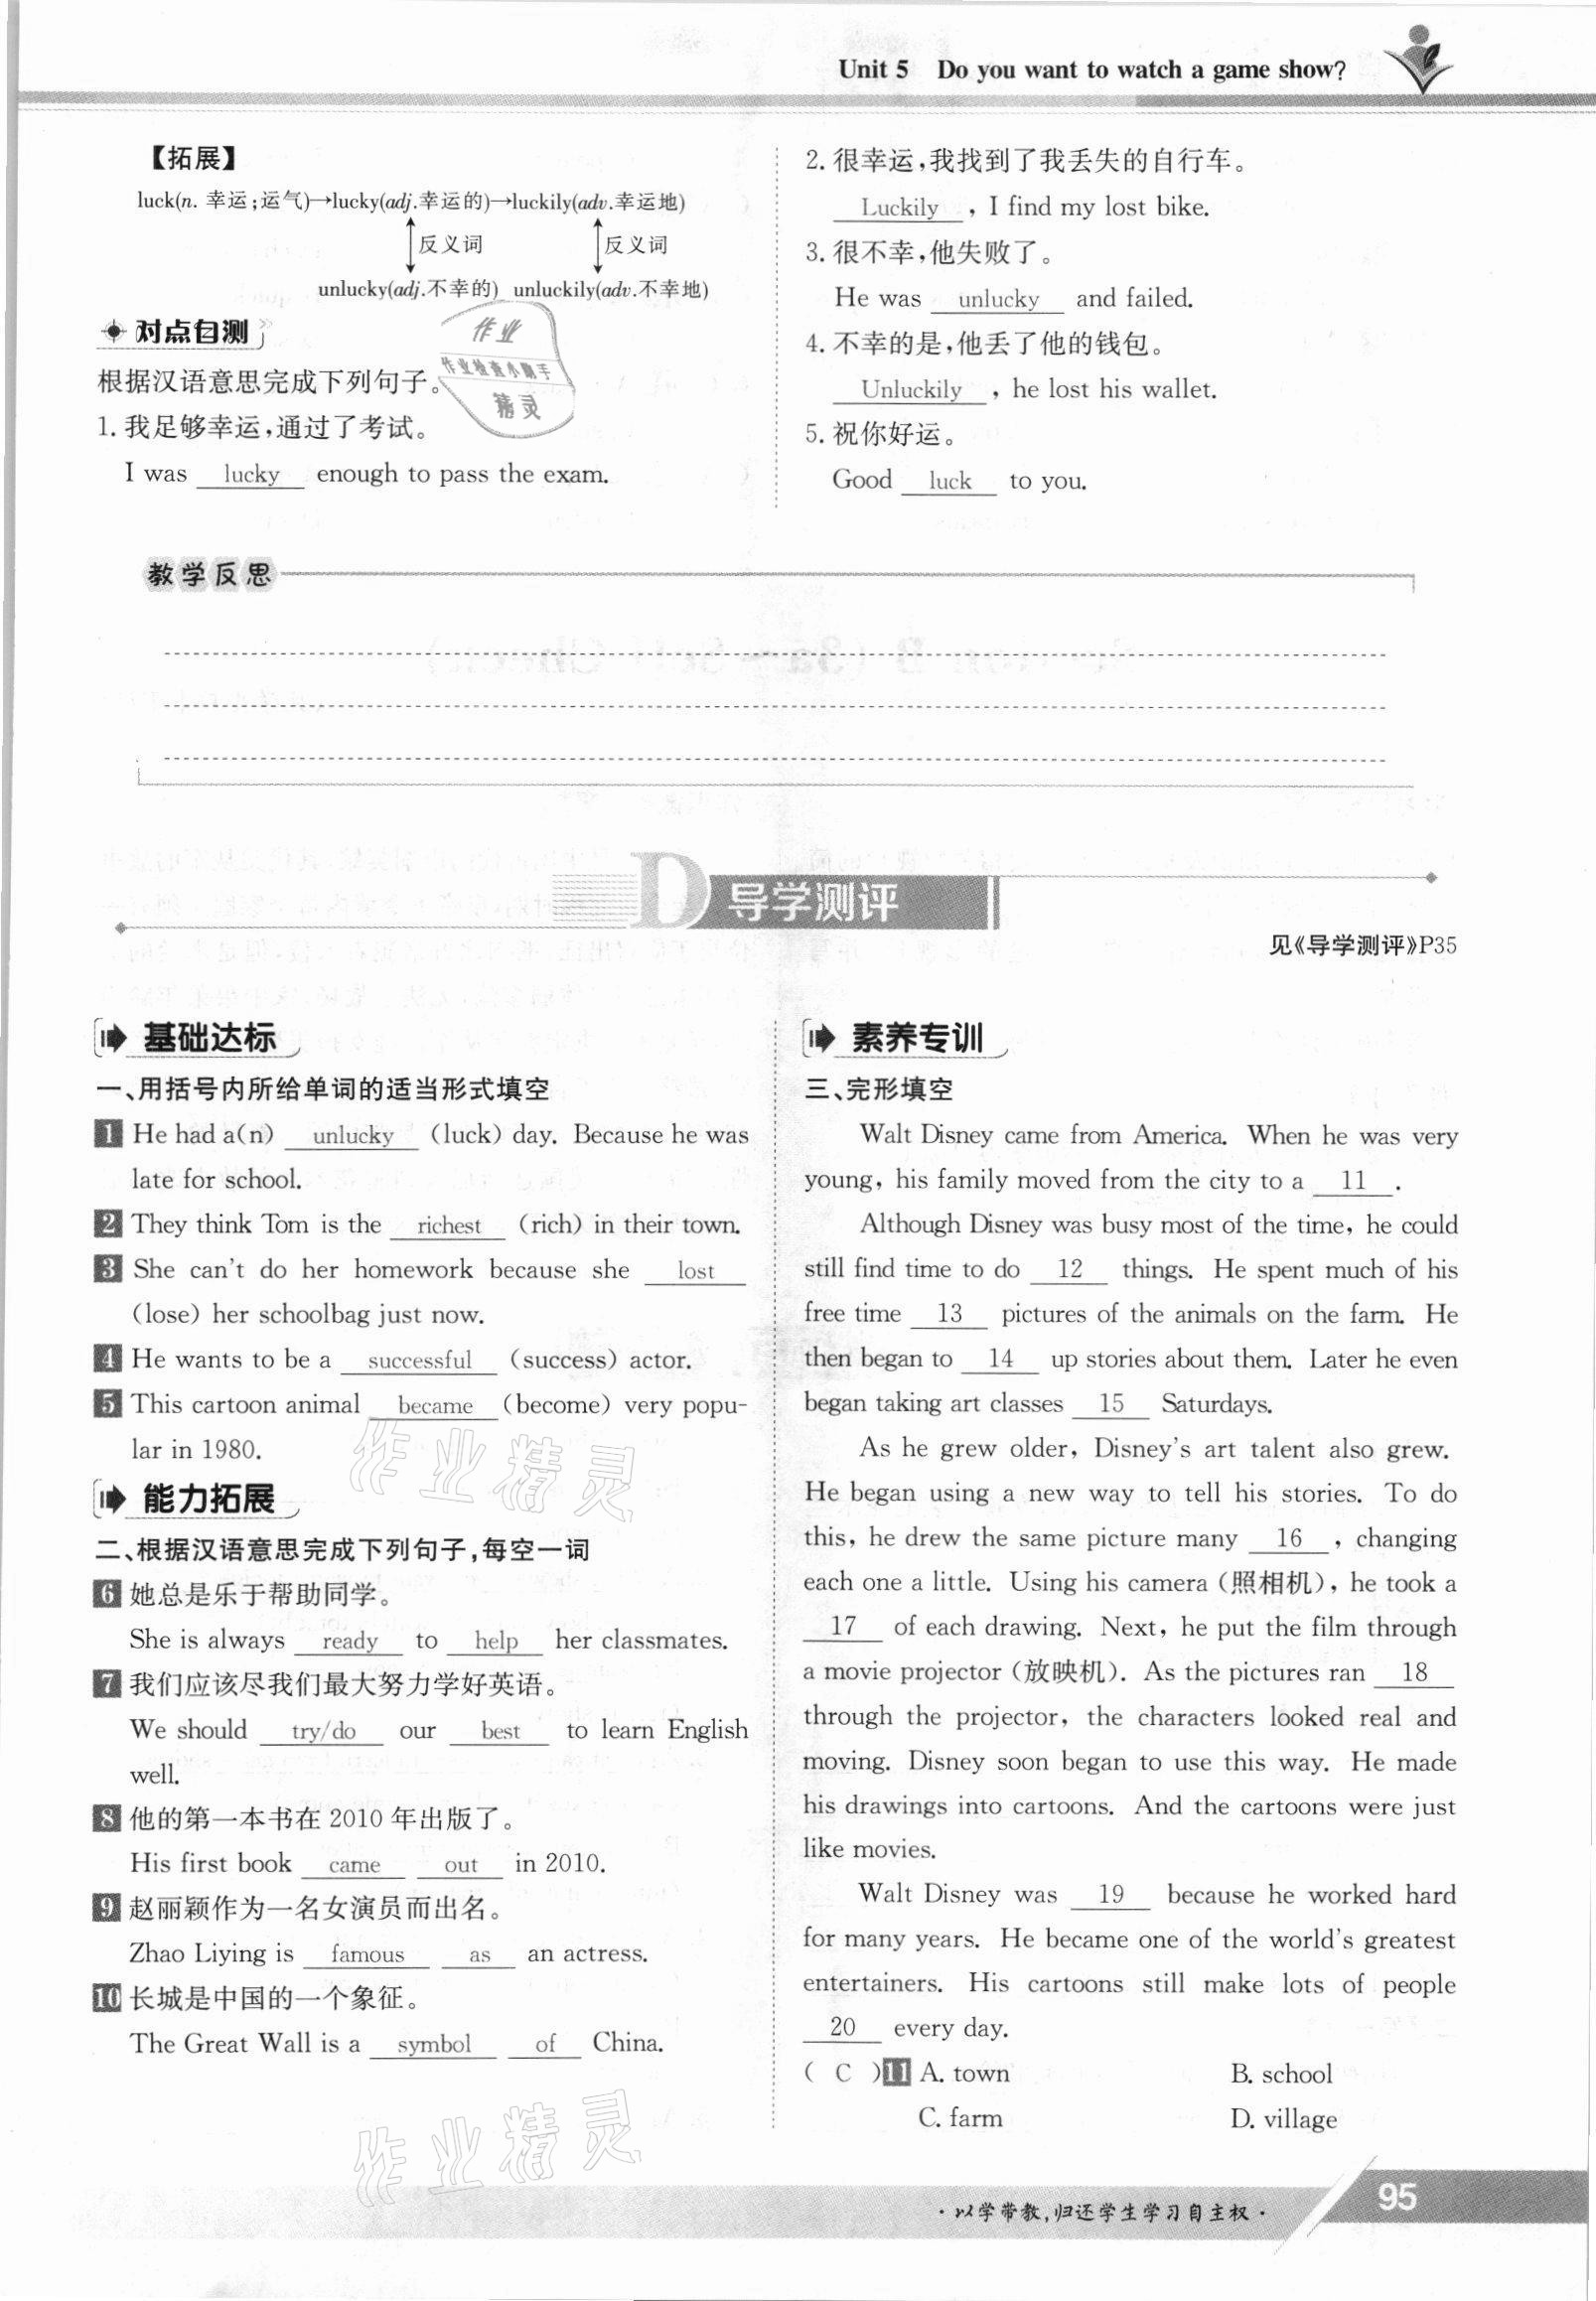 Unit 5 Do you want to watch a game show?
【拓展】
luck(n. 幸运;运气)→lucky(adj.幸运的)→luckily(adv.幸运地)
反义词 反义词
unlucky(adj.不幸的) unluckily(adv.不幸地)
对点自测
根据汉语意思完成下列句子。
1. 我足够幸运,通过了考试。
I was lucky enough to pass the exam.
2. 很幸运,我找到了我丢失的自行车。
Luckily , I find my lost bike.
3. 很不幸,他失败了。
He was unlucky and failed.
4. 不幸的是,他丢了他的钱包。
Unluckily , he lost his wallet.
5. 祝你好运。
Good luck to you.
作业
作业检查小助手
精灵
教学反思
D 导学测评
见《导学测评》P35
基础达标
一、用括号内所给单词的适当形式填空
1 He had a(n) unlucky (luck) day. Because he was
late for school.
2 They think Tom is the richest (rich) in their town.
3 She can't do her homework because she lost
(lose) her schoolbag just now.
4 He wants to be a successful (success) actor.
5 This cartoon animal became (become) very popu-
lar in 1980.
能力拓展
二、根据汉语意思完成下列句子,每空一词
6 她总是乐于帮助同学。
She is always ready to help her classmates.
7 我们应该尽我们最大努力学好英语。
We should try/do our best to learn English
well.
8 他的第一本书在 2010 年出版了。
His first book came out in 2010.
9 赵丽颖作为一名女演员而出名。
Zhao Liying is famous as an actress.
10 长城是中国的一个象征。
The Great Wall is a symbol of China.
作业精灵
作业精灵
素养专训
三、完形填空
Walt Disney came from America. When he was very
young, his family moved from the city to a 11 .
Although Disney was busy most of the time, he could
still find time to do 12 things. He spent much of his
free time 13 pictures of the animals on the farm. He
then began to 14 up stories about them. Later he even
began taking art classes 15 Saturdays.
As he grew older, Disney's art talent also grew.
He began using a new way to tell his stories. To do
this, he drew the same picture many 16 , changing
each one a little. Using his camera (照相机), he took a
17 of each drawing. Next, he put the film through
a movie projector (放映机). As the pictures ran 18
through the projector, the characters looked real and
moving. Disney soon began to use this way. He made
his drawings into cartoons. And the cartoons were just
like movies.
Walt Disney was 19 because he worked hard
for many years. He became one of the world's greatest
entertainers. His cartoons still make lots of people
20 every day.
( C )11 A. town B. school
C. farm D. village
·以学带教,归还学生学习自主权·
95